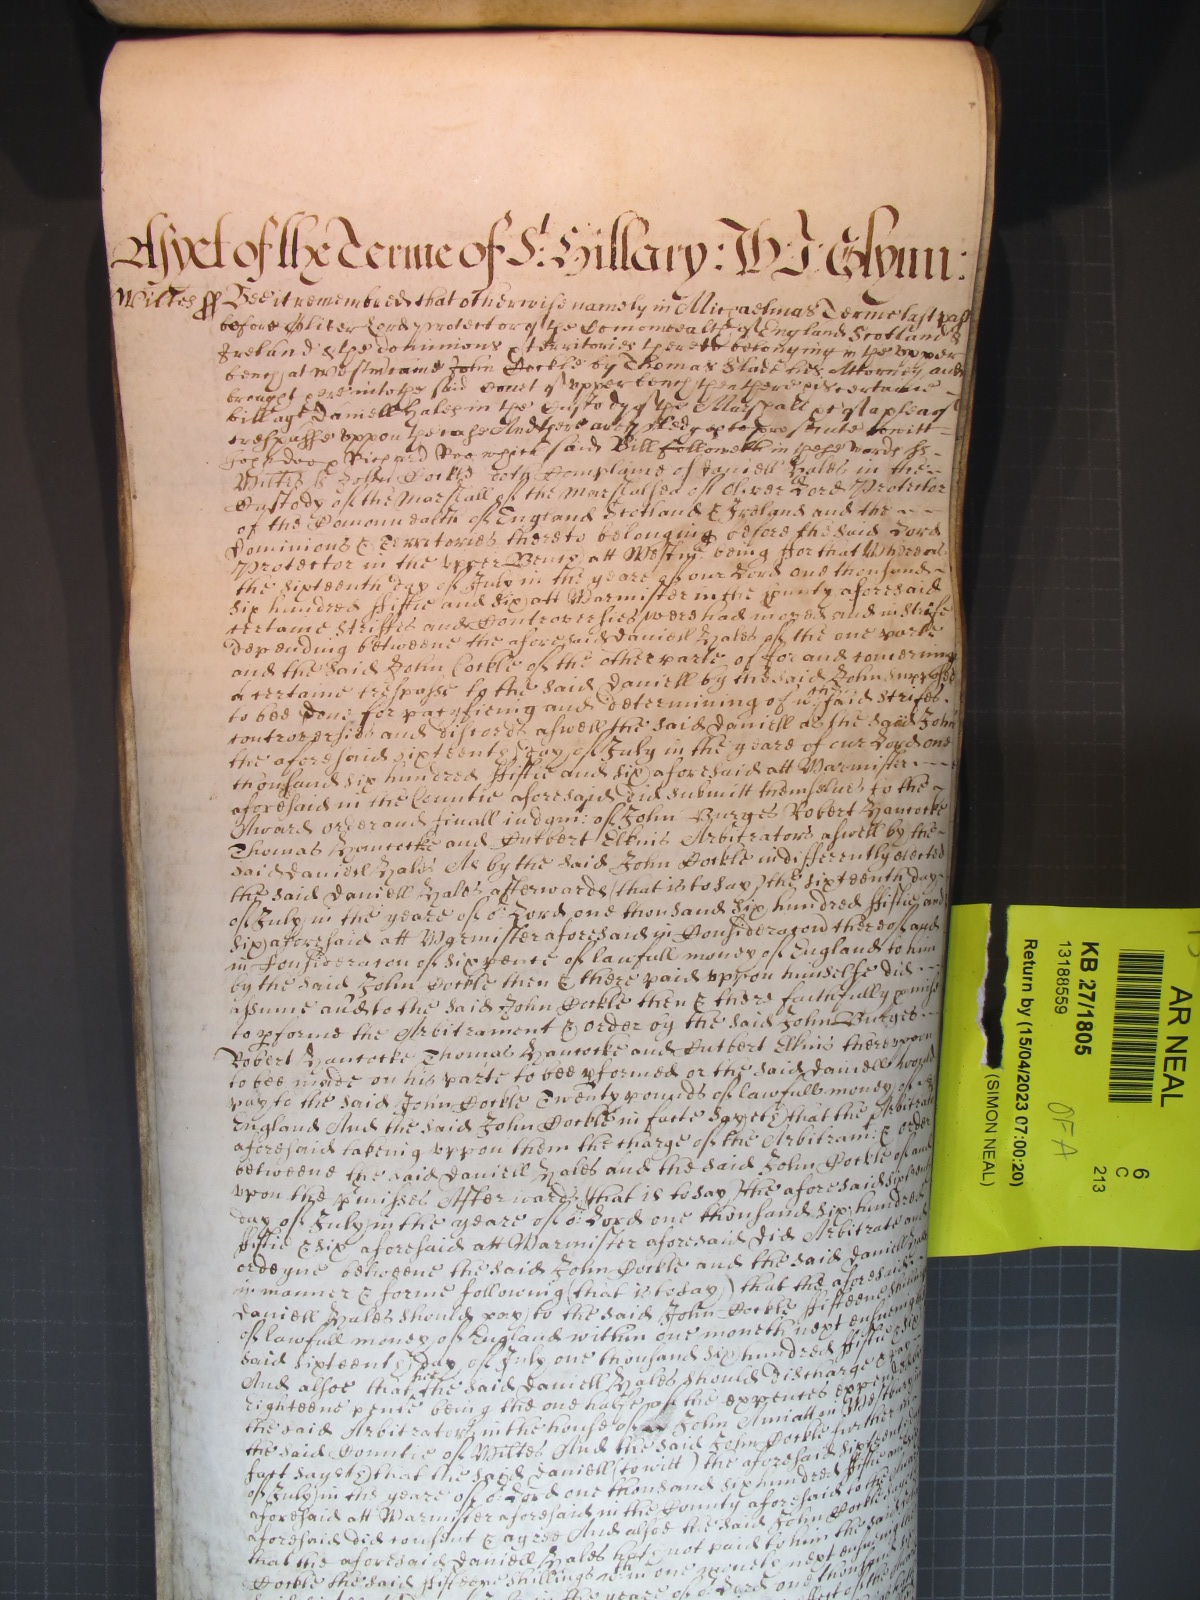 As yet of the Terme of St. Hillary: W J: Glynn:
Wiltes ss Bee it remembred that otherwise namely in Michaelmas Terme last past
before Oliver Lord Protector of the Comonwealth of England Scotland &
Ireland & the dominions & territories thereto belonging in the upper
bench at Westm came John Cockle by Thomas Slade his Attorney and
brought here into the said Court of upper bench then there his certaine
bill agt Daniell Hales in the Custody of the Marshall &c of a plea of
trespasse uppon the case And there are pledges to prosecute to witt
John Doe & Richard Roe which said Bill followeth in these words ss
Wiltes ss John Cockle Complaines of Daniell Hales in the
Custody of the Marshall of the Marshalsea of Oliver Lord Protector
of the Comonwealth of England Scotland & Ireland and the
Dominions & Territories thereto belonging before the said Lord
Protector in the upper Bench att Westmr being For that Whereas
the sixteenth day of July in the yeare of our Lord one thousand
six hundred fiftie and six att Warmister in the County aforesaid
certaine striffes and Controversies were had moved and in strife
depending betweene the aforesaid Daniell Hales of the one parte
and the said John Cockle of the other parte of for and concerning
a certaine trespasse to the said Daniell by the said John supposed
to bee done for pacyfieing and determining of wch said strifes
controversies and discords aswell the said Daniell as the said John
the aforesaid sixteenth day of July in the yeare of our Lord one
thousand six hundred fiftie and six aforesaid att Warmister
aforesaid in the Countie aforesaid did submitt themselves to the
Award order and finall iudgmt of John Burges Robert Hancocke
Thomas Hancocke and Cutbert Elkins Arbitrators aswell by the
said Daniell Hales As by the said John Cockle indifferently elected
the said Daniell Hales afterwards (that is to say) the sixteenth day
of July in the yeare of or Lord one thousand six hundred fiftie and
six aforesaid att Warmister aforesaid in Consideracon thereof and
in Consideracon of six pence of lawfull money of England to him
by the said John Cockle then & there paid uppon himselfe did
assume and to the said John Cockle then & there faithfully pmise
to pforme the Arbitrament & order by the said John Burges
Robert Hancocke Thomas Hancocke and Cutbert Elkins thereuppon
to bee made on his parte to bee pformed or the said Daniell would
pay to the said John Cockle Twenty pounds of lawfull money of
England And the said John Cockle in facte sayeth that the Arbitrators
aforesaid takeing uppon them the charge of the Arbitramt & order
betweene the said Daniell Hales and the said John Cockle of and
upon the pmisses Afterwards (that is to say) the aforesaid sixteenth
day of July in the yeare of or Lord one thousand six hundred
fiftie & six aforesaid att Warmister aforesaid did Arbitrate and
ordeyne betweene the said John Cockle and the said Daniell Hales
in manner & forme following (that is to say) that the aforesaid
Daniell Hales should pay to the said John Cockle fifteene shillings
of lawfull money of England within one moneth next ensueing the
said sixteenth day of July one thousand six hundred fiftie & six
And alsoe that hee the said Daniell Hales should discharge & pay
eighteene pence being the one halfe of the expences expended by
the said Arbitrators in the house of John Amiatt in Westbury in
the said Countie of Wiltes And the said John Cockle further in
fact sayeth that the said Daniell (to witt) the aforesaid sixteenth
of July in the yeare of or Lord one thousand six hundred fiftie and
aforesaid att Warmister aforesaid in the County aforesaid to the
aforesaid did consent & agree And alsoe the said John Cockle
that the aforesaid Daniell Hales hath not paid to him the said
Cockle the said fifteene shillings within one moneth next ensueing
the yeare of or Lord one thousand
AR NEAL
KB 27/1805
13188559
Return by (15/04/2023 07:00:20)
(SIMON NEAL)
OFA
6
C
213